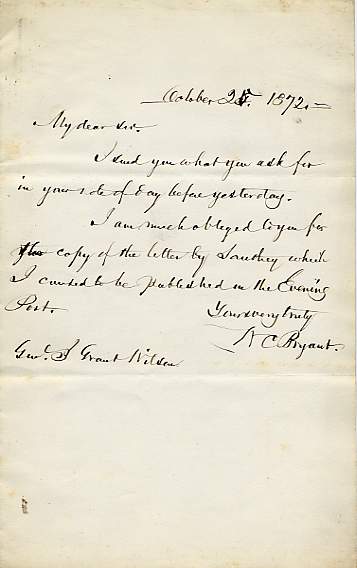 October 25. 1872.
My dear sir.
I send you what you ask for
in your note of day before yesterday.
I am much obliged to you for
the copy of the letter by Southey which
I caused to be published in the Evening
Post.
Yours very truly
W C Bryant.
Genl. J Grant Wilson